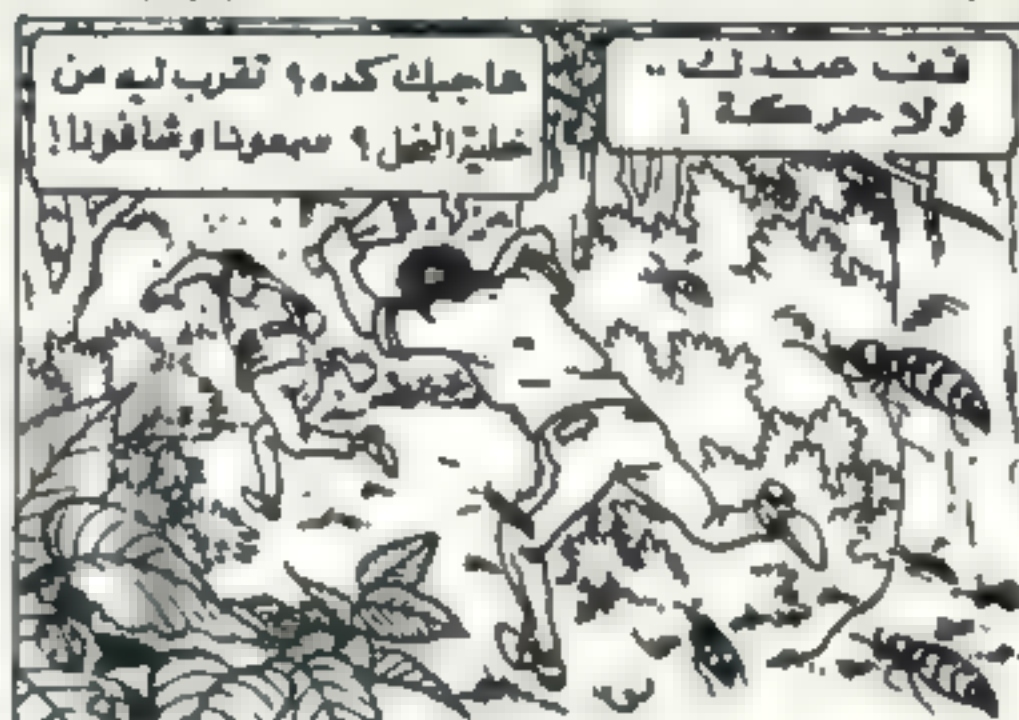 قف عندك ..
ولا حركة !
عاجبك كده؟ تقرب ليه من
خلية النحل؟ سمعونا وشافونا!